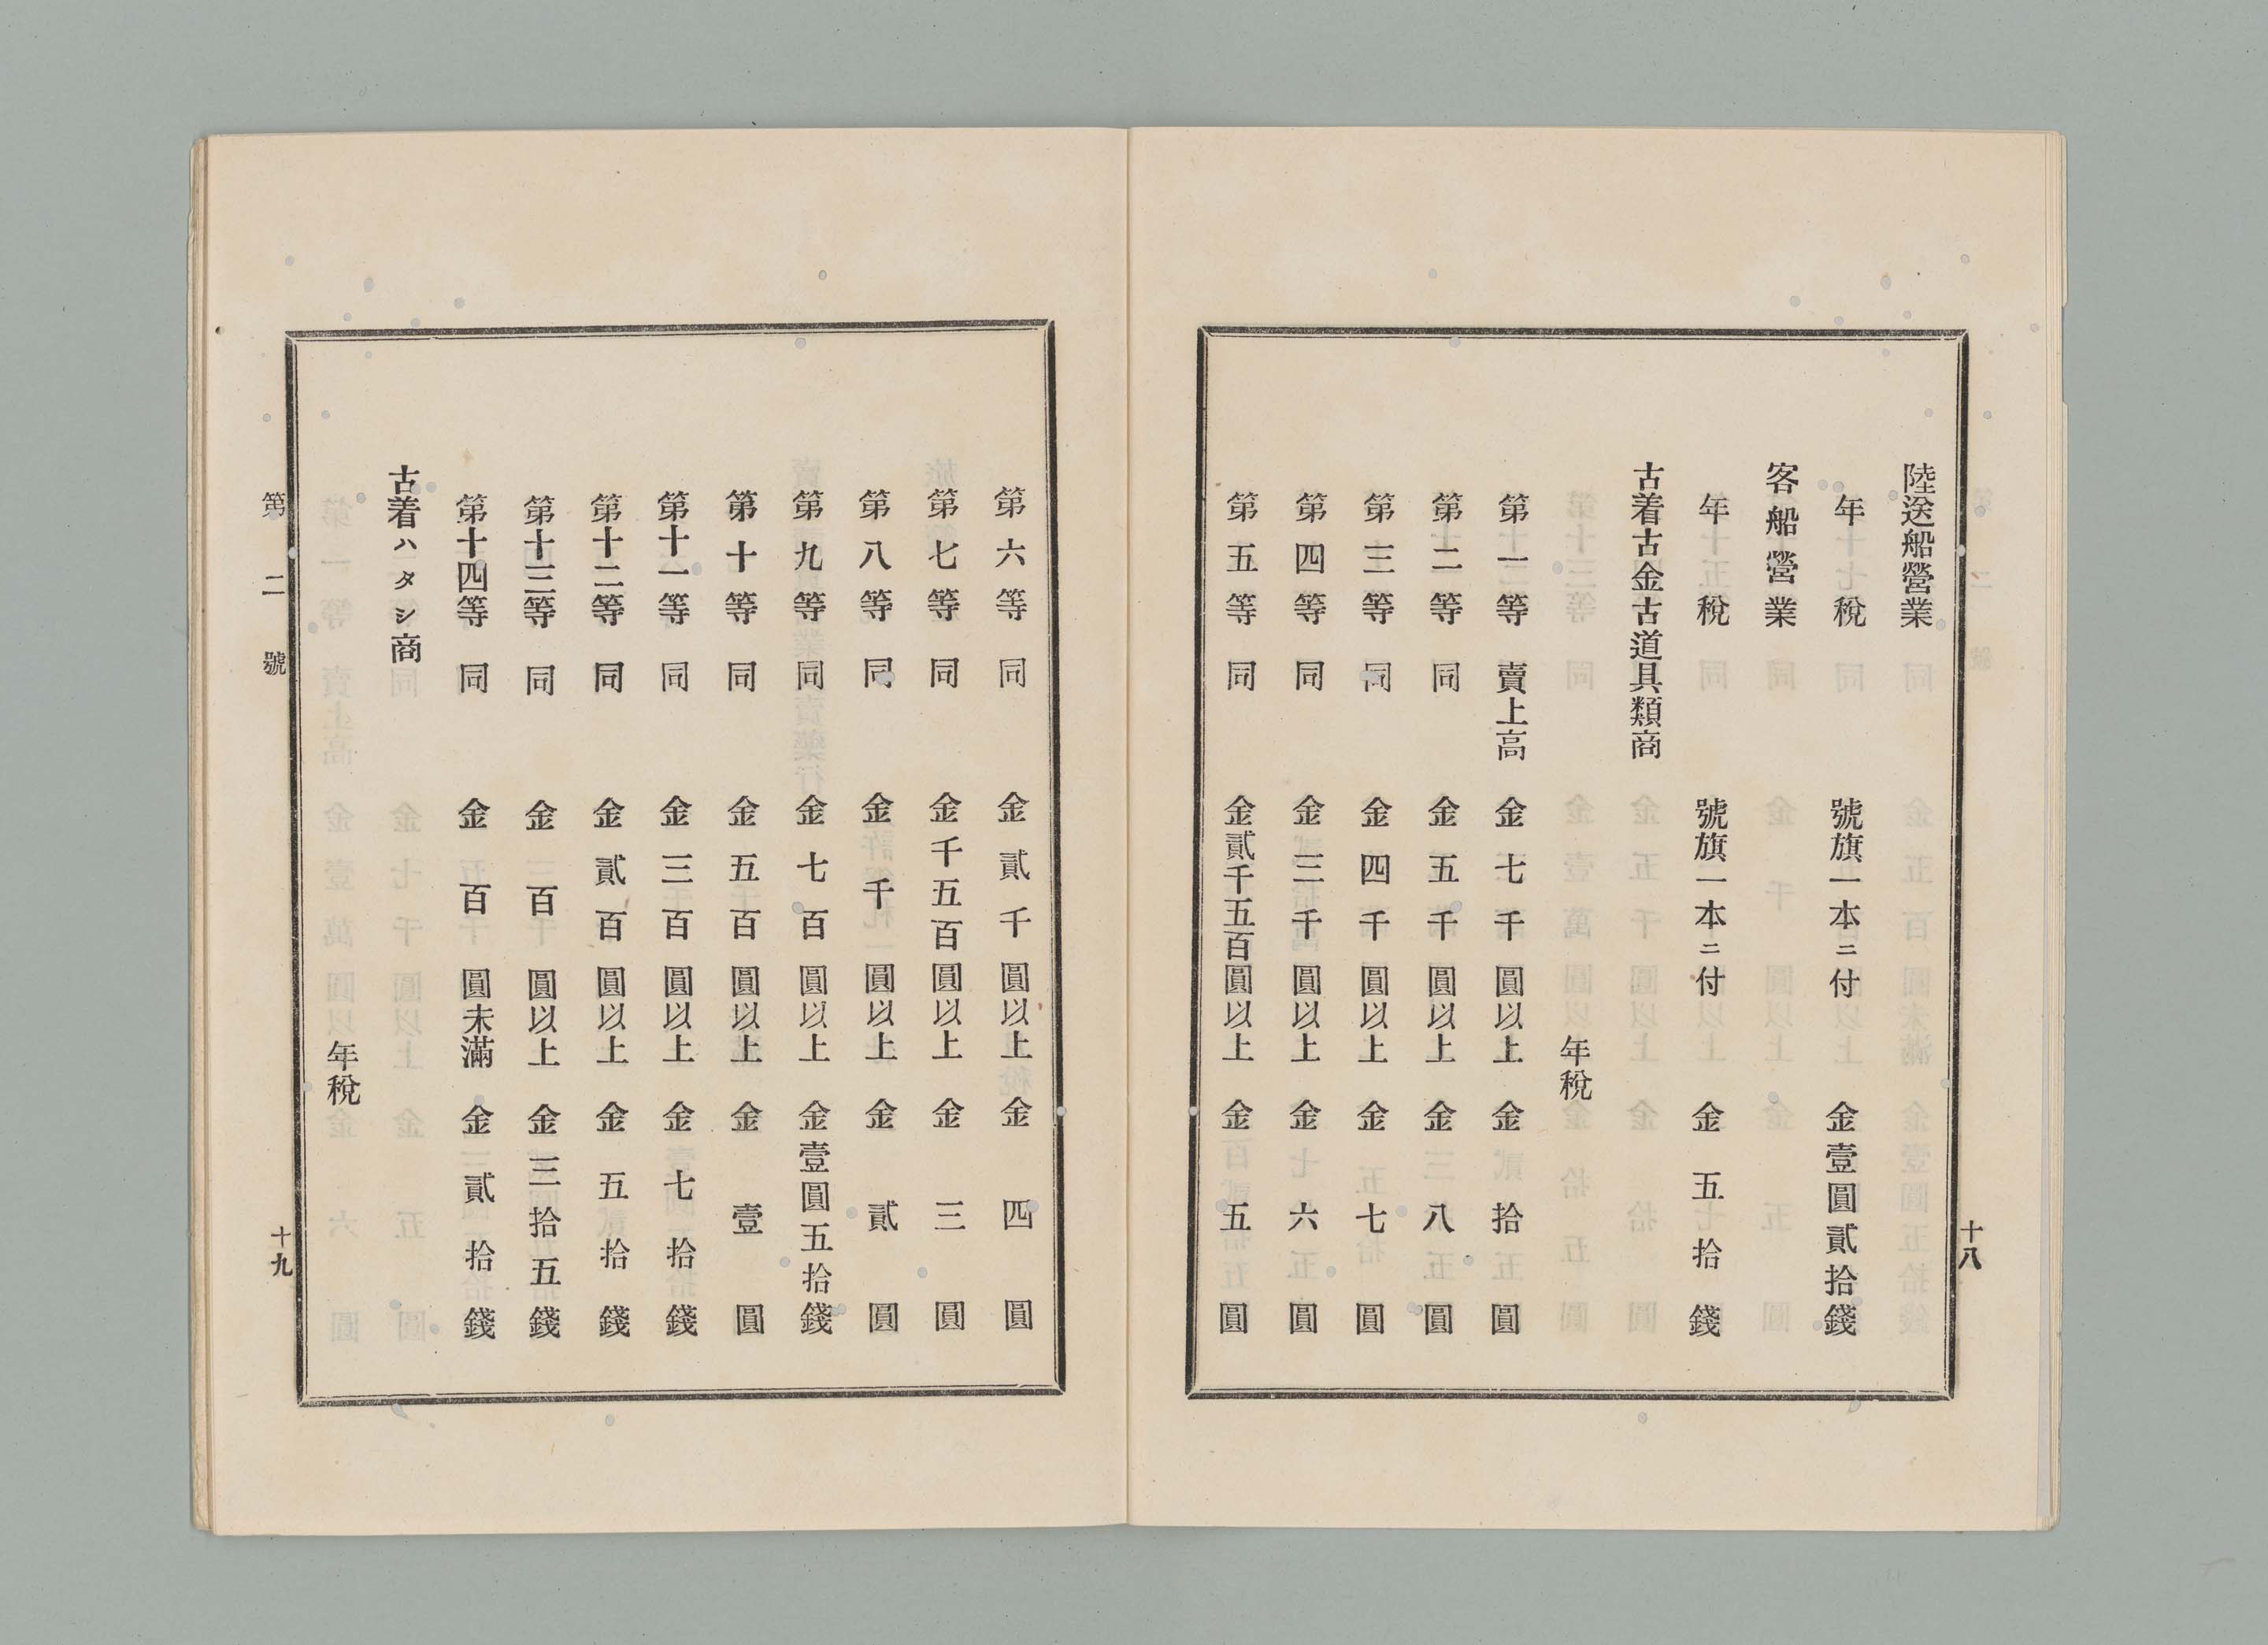 陸送船營業
年稅 號旗一本ニ付 金壹圓貳拾錢
客船營業
年稅 號旗一本ニ付 金五拾錢
古着古金古道具類商
年稅
第一等 賣上高 金七千圓以上 金拾圓
第二等 同 金五千圓以上 金八圓
第三等 同 金四千圓以上 金七圓
第四等 同 金三千圓以上 金六圓
第五等 同 金貳千五百圓以上 金五圓
十八
第六等 同 金貳千圓以上 金四圓
第七等 同 金千五百圓以上 金三圓
第八等 同 金千圓以上 金貳圓
第九等 同 金七百圓以上 金壹圓五拾錢
第十等 同 金五百圓以上 金壹圓
第十一等 同 金三百圓以上 金七拾錢
第十二等 同 金貳百圓以上 金五拾錢
第十三等 同 金百圓以上 金三拾五錢
第十四等 同 金百圓未滿 金貳拾錢
古着ハタシ商
年稅
第二號 十九